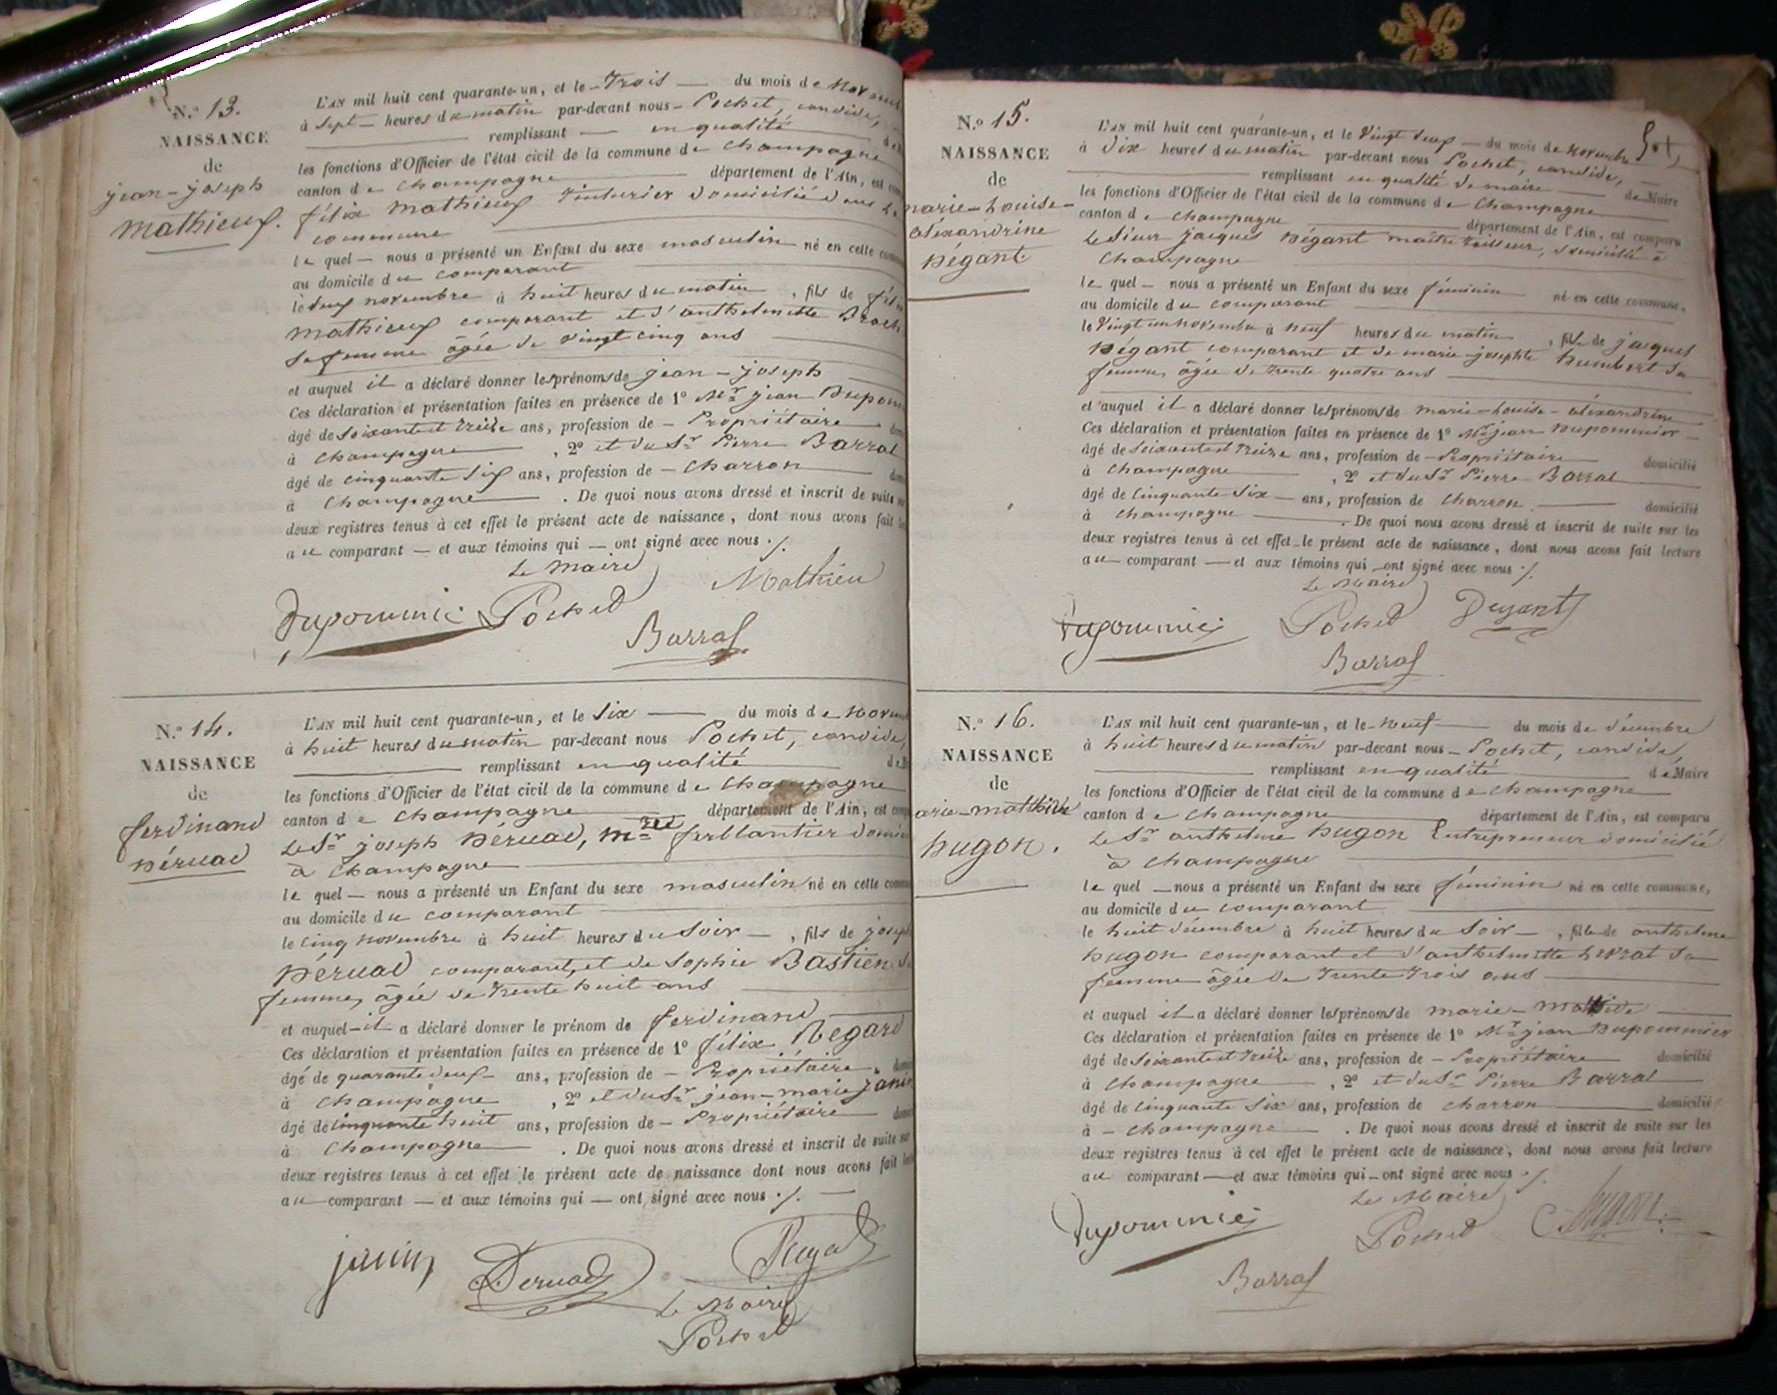 N.º 13.
NAISSANCE
de
jean-joseph
Mathieux.
L'AN mil huit cent quarante-un, et le Trois du mois de Novem
à Sept heures du matin par-devant nous Pochet, candide,
remplissant en qualité de
les fonctions d'Officier de l'état civil de la commune de Champagne
canton de Champagne département de l'Ain, est com
félix Mathieux domicilié dans la
commune
lequel nous a présenté un Enfant du sexe masculin né en cette comm
au domicile du comparant
le deux novembre à huit heures du matin, fils de féli
Mathieux comparant et d'anthelmette Broch
Sa femme âgée de vingt cinq ans
et auquel il a déclaré donner les prénoms de jean-joseph
Ces déclaration et présentation faites en présence de 1º Mr jean Dupom
âgé de soixante et treize ans, profession de Propriétaire dom
à Champagne, 2º et du Sr Pierre Barral
âgé de cinquante six ans, profession de Charron dom
à Champagne. De quoi nous avons dressé et inscrit de suite sur
deux registres tenus à cet effet le présent acte de naissance, dont nous avons fait lec
au comparant et aux témoins qui ont signé avec nous ./.
Le Maire
Mathieu
Dupommié Pochet
Barral
N.º 14.
NAISSANCE
de
ferdinand
Déruad
L'AN mil huit cent quarante-un, et le Six du mois de Novem
à huit heures du matin par-devant nous Pochet, candide,
remplissant en qualité de M
les fonctions d'Officier de l'état civil de la commune de Champagne
canton de Champagne département de l'Ain, est comp
Le Sr joseph Deruad, ferblantier domici
à Champagne
lequel nous a présenté un Enfant du sexe masculin né en cette comm
au domicile du comparant
le cinq novembre à huit heures du Soir, fils de joseph
Déruad comparant, et de Sophie Bastien Sa
femme, âgée de trente huit ans
et auquel il a déclaré donner le prénom de ferdinand
Ces déclaration et présentation faites en présence de 1º félix Regard
âgé de quarante deux ans, profession de Propriétaire, domi
à Champagne, 2º et du Sr jean-marie Janin
âgé de cinquante huit ans, profession de Propriétaire domi
à Champagne. De quoi nous avons dressé et inscrit de suite sur
deux registres tenus à cet effet le présent acte de naissance dont nous avons fait lect
au comparant et aux témoins qui ont signé avec nous ./.
janin Deruad Regard
Le Maire
Pochet
N.º 15.
NAISSANCE
de
marie-Louise-
aléxandrine
Dégant
L'AN mil huit cent quarante-un, et le Vingt deux du mois de Novembre
à Dix heures du matin par-devant nous Pochet, candide,
remplissant en qualité de maire de Maire
les fonctions d'Officier de l'état civil de la commune de Champagne
canton de Champagne département de l'Ain, est comparu
Le Sieur jacques Dégant maître tailleur, domicilié à
Champagne
lequel nous a présenté un Enfant du sexe féminin né en cette commune,
au domicile du comparant
le Vingt un novembre à neuf heures du matin, fille de jacques
Dégant comparant et de marie-josephte humbert Sa
femme, âgée de trente quatre ans
et auquel il a déclaré donner les prénoms de marie-Louise-aléxandrine
Ces déclaration et présentation faites en présence de 1º Mr jean Dupommier
âgé de soixante et treize ans, profession de Propriétaire domicilié
à Champagne, 2º et du Sr Pierre Barral
âgé de cinquante Six ans, profession de Charron domicilié
à Champagne. De quoi nous avons dressé et inscrit de suite sur les
deux registres tenus à cet effet le présent acte de naissance, dont nous avons fait lecture
au comparant et aux témoins qui ont signé avec nous ./.
Le Maire
Dupommié Pochet Degant
Barral
N.º 16.
NAISSANCE
de
arie-mathilde
hugon.
L'AN mil huit cent quarante-un, et le Neuf du mois de décembre
à huit heures du matin par-devant nous Pochet, candide,
remplissant en qualité de Maire
les fonctions d'Officier de l'état civil de la commune de Champagne
canton de Champagne département de l'Ain, est comparu
Le Sr anthelme hugon Entrepreneur domicilié
à Champagne
lequel nous a présenté un Enfant du sexe féminin né en cette commune,
au domicile du comparant
le huit décembre à huit heures du Soir, fille de anthelme
hugon comparant et d'anthelmette Sa
femme âgée de Trente Trois ans
et auquel il a déclaré donner les prénoms de marie-mathilde
Ces déclaration et présentation faites en présence de 1º Mr jean Dupommier
âgé de soixante et treize ans, profession de Propriétaire domicilié
à Champagne, 2º et du Sr Pierre Barral
âgé de cinquante Six ans, profession de Charron domicilié
à Champagne. De quoi nous avons dressé et inscrit de suite sur les
deux registres tenus à cet effet le présent acte de naissance, dont nous avons fait lecture
au comparant et aux témoins qui ont signé avec nous ./.
Le Maire
Dupommié Pochet hugon
Barral